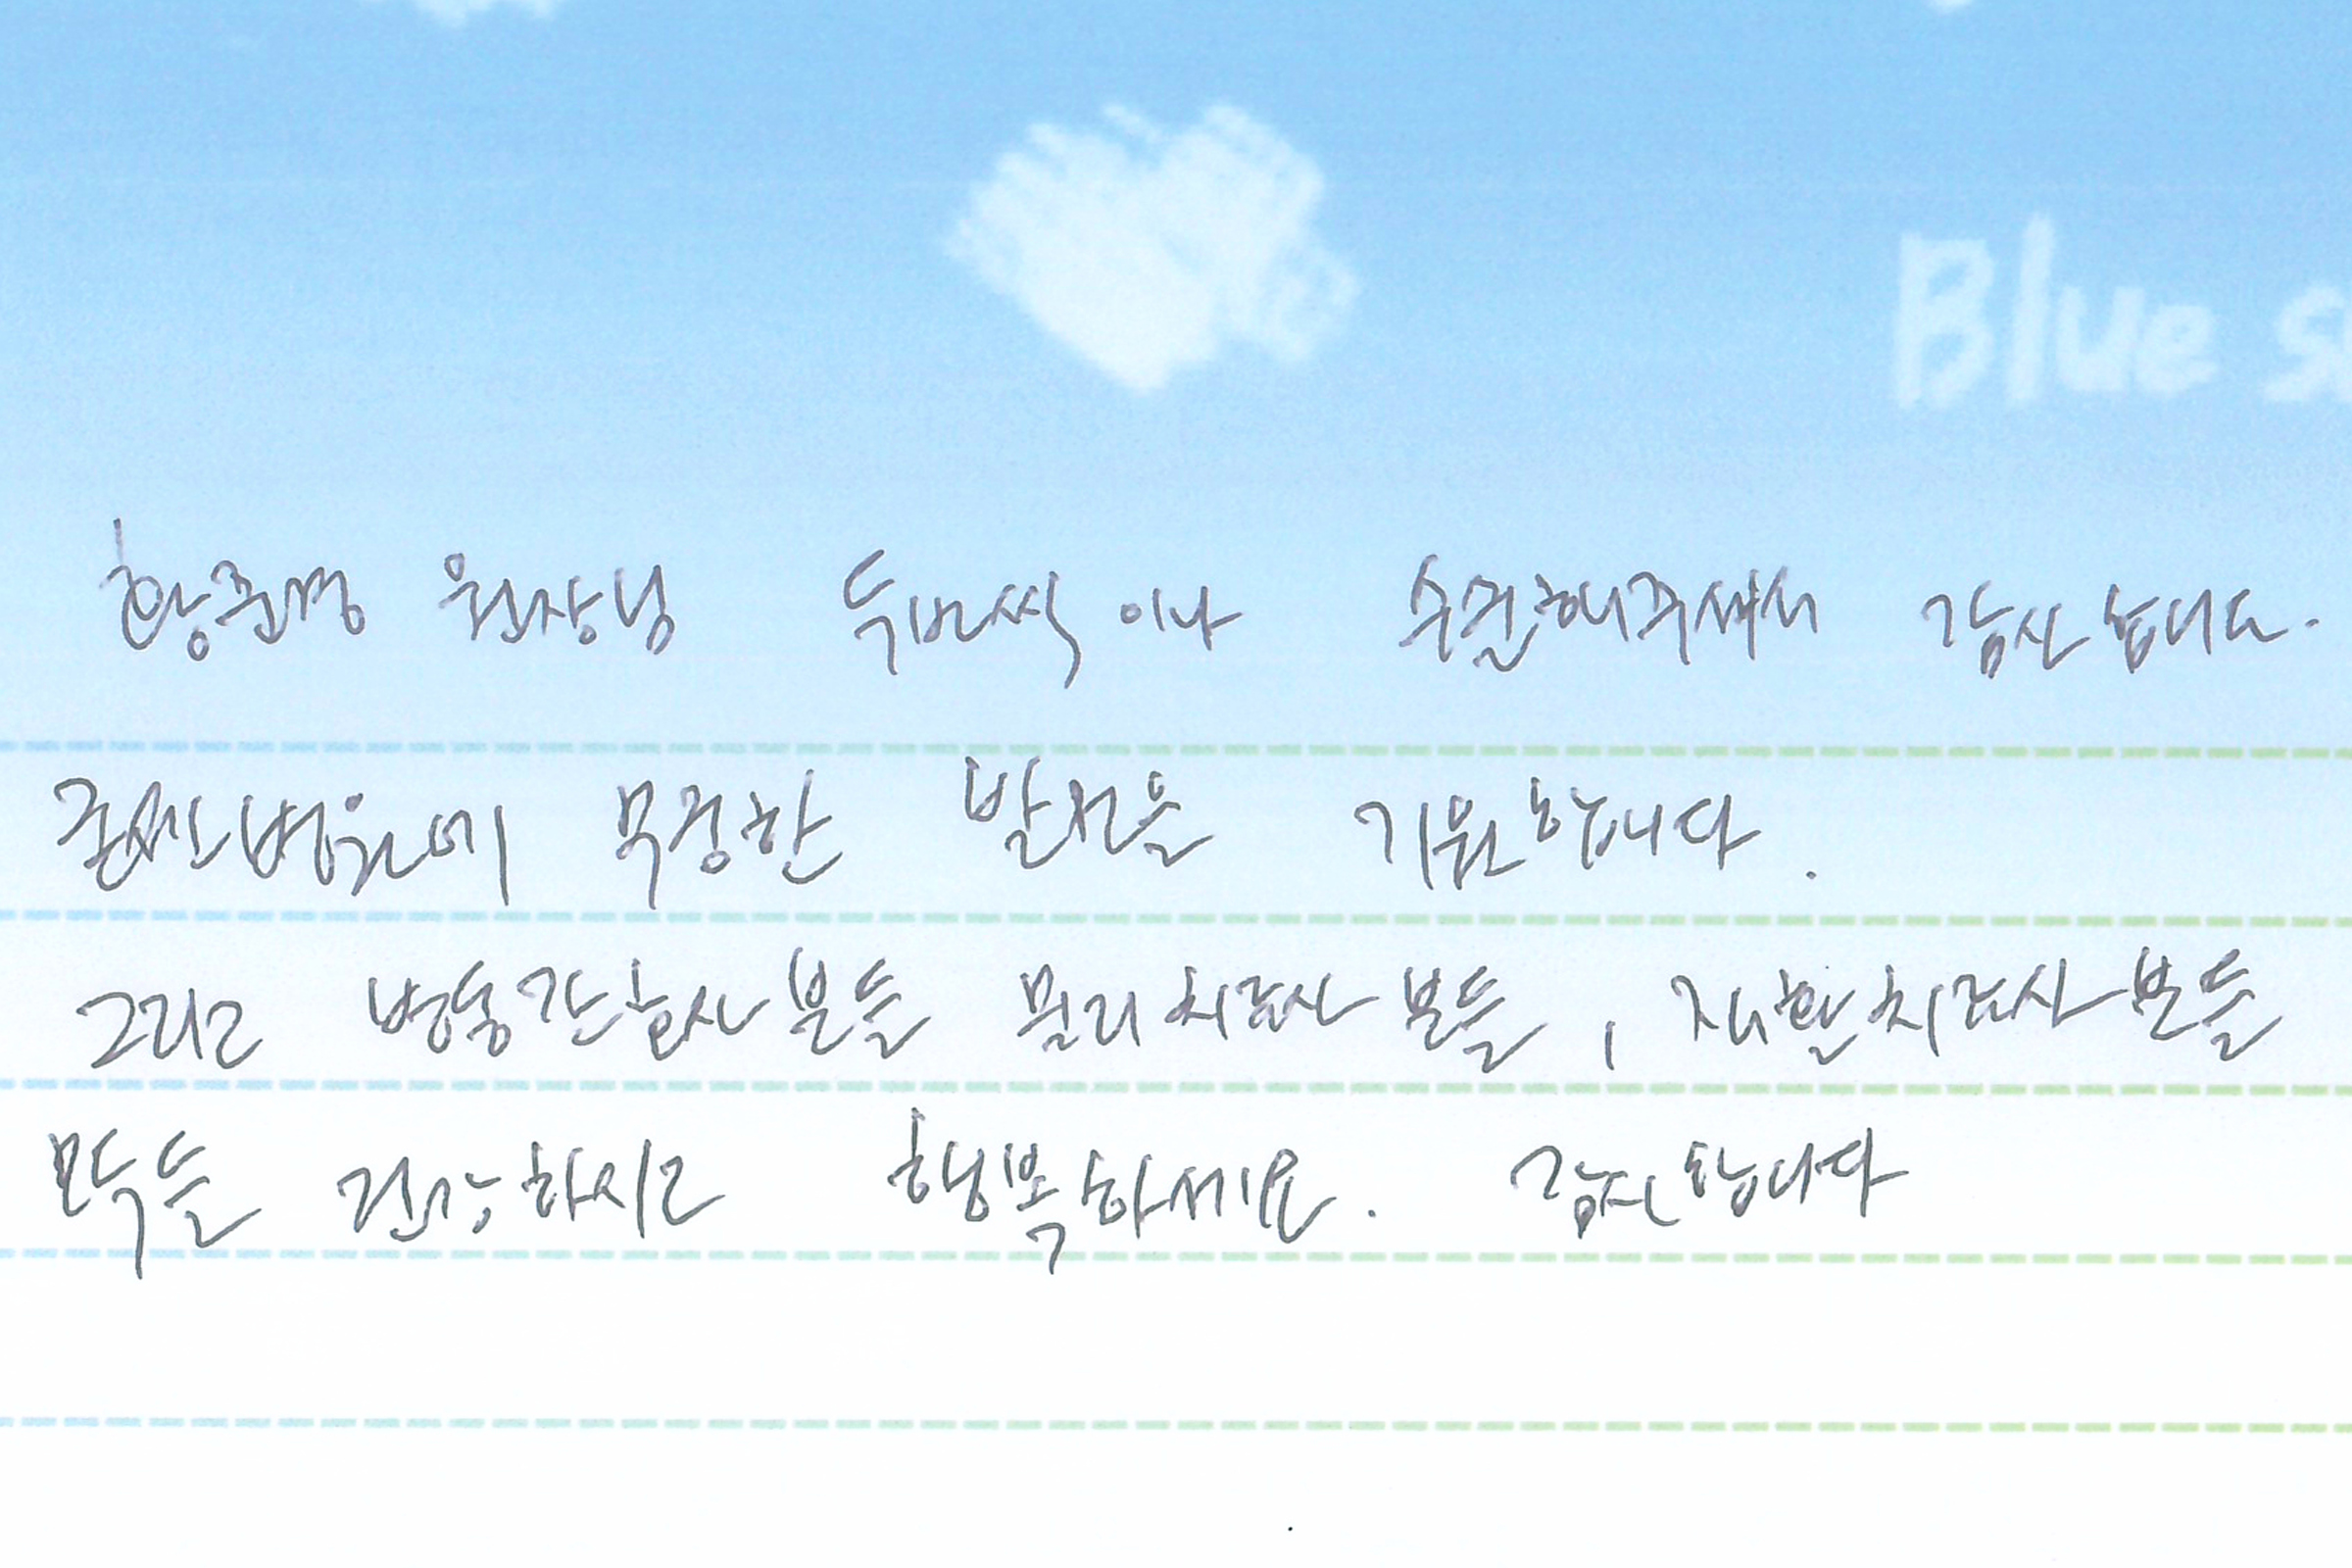 Blue s
황준영 원장님 두번씩 이나 수술해주셔서 감사 합니다.
굳센병원에 무궁한 발전을 기원합니다.
그리고 병동간호사 분들 물리치료사 분들, 재활치료사분들
모두들 건강하시고 행복하세요. 감사 합니다